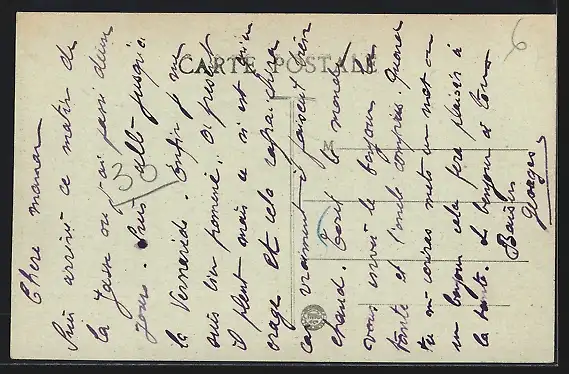 CARTE POSTALE
M
6
30
Chère maman
Suis arrivé ce matin de
la Jasse où j'ai passé deux
jours. Suis allé jusqu'à
la Vernarède. Enfin je me
suis bien promené. À présent
il pleut mais ce n'est qu'un
orage et cela rafraichira
car vraiment il faisait bien
chaud. tout le monde
vous envoie le bonjour
tante et l'oncle compris. Quand
tu m'écriras mets un mot ou
un bonjour cela fera plaisir à
la tante. Le bonjour à tous
Baisers
Georges